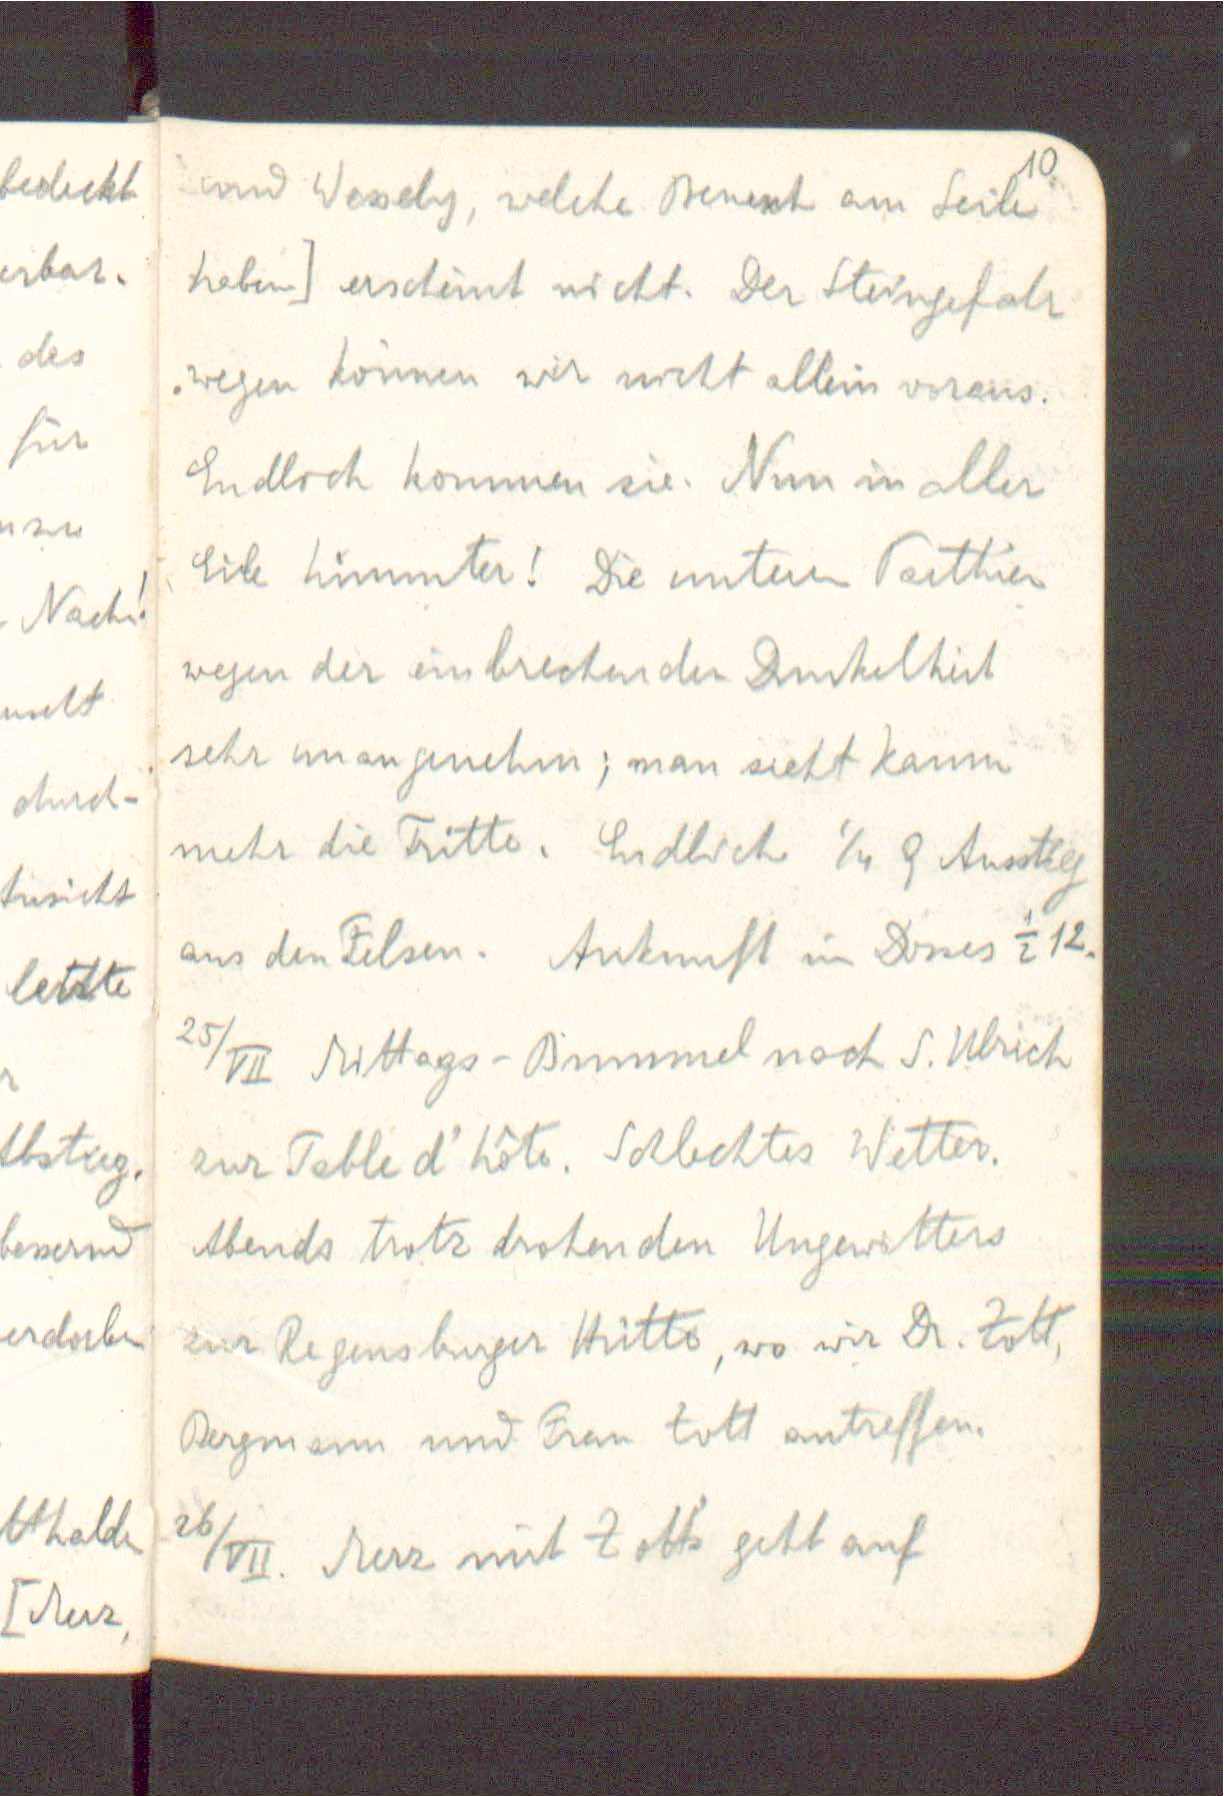 10.
und Wessely, welche Benesch am Seile
haben] erscheint nicht. Der Steingefahr
wegen können wir nicht allein voraus.
Endlich kommen sie. Nun in aller
Eile hinunter! Die unteren Parthien
wegen der einbrechenden Dunkelheit
sehr unangenehm; man sieht kaum
mehr die Tritte. Endlich 1/4 9 Ausstieg
aus den Felsen. Ankunft in Dosses 1/2 12.
25/VII Mittags-Bummel nach S. Ulrich
zur Table d'hôte. Schlechtes Wetter.
Abends trotz drohenden Ungewitters
zur Regensburger Hütte, wo wir Dr. Zott,
Bergmann und Frau Zott antreffen.
26/VII. Merz mit Zott's geht auf
bedeckt
erbar.
des
für
Nach!
durch-
nsicht
letzte
Abstieg.
bessernd
erdorben
tthalde
[Merz,